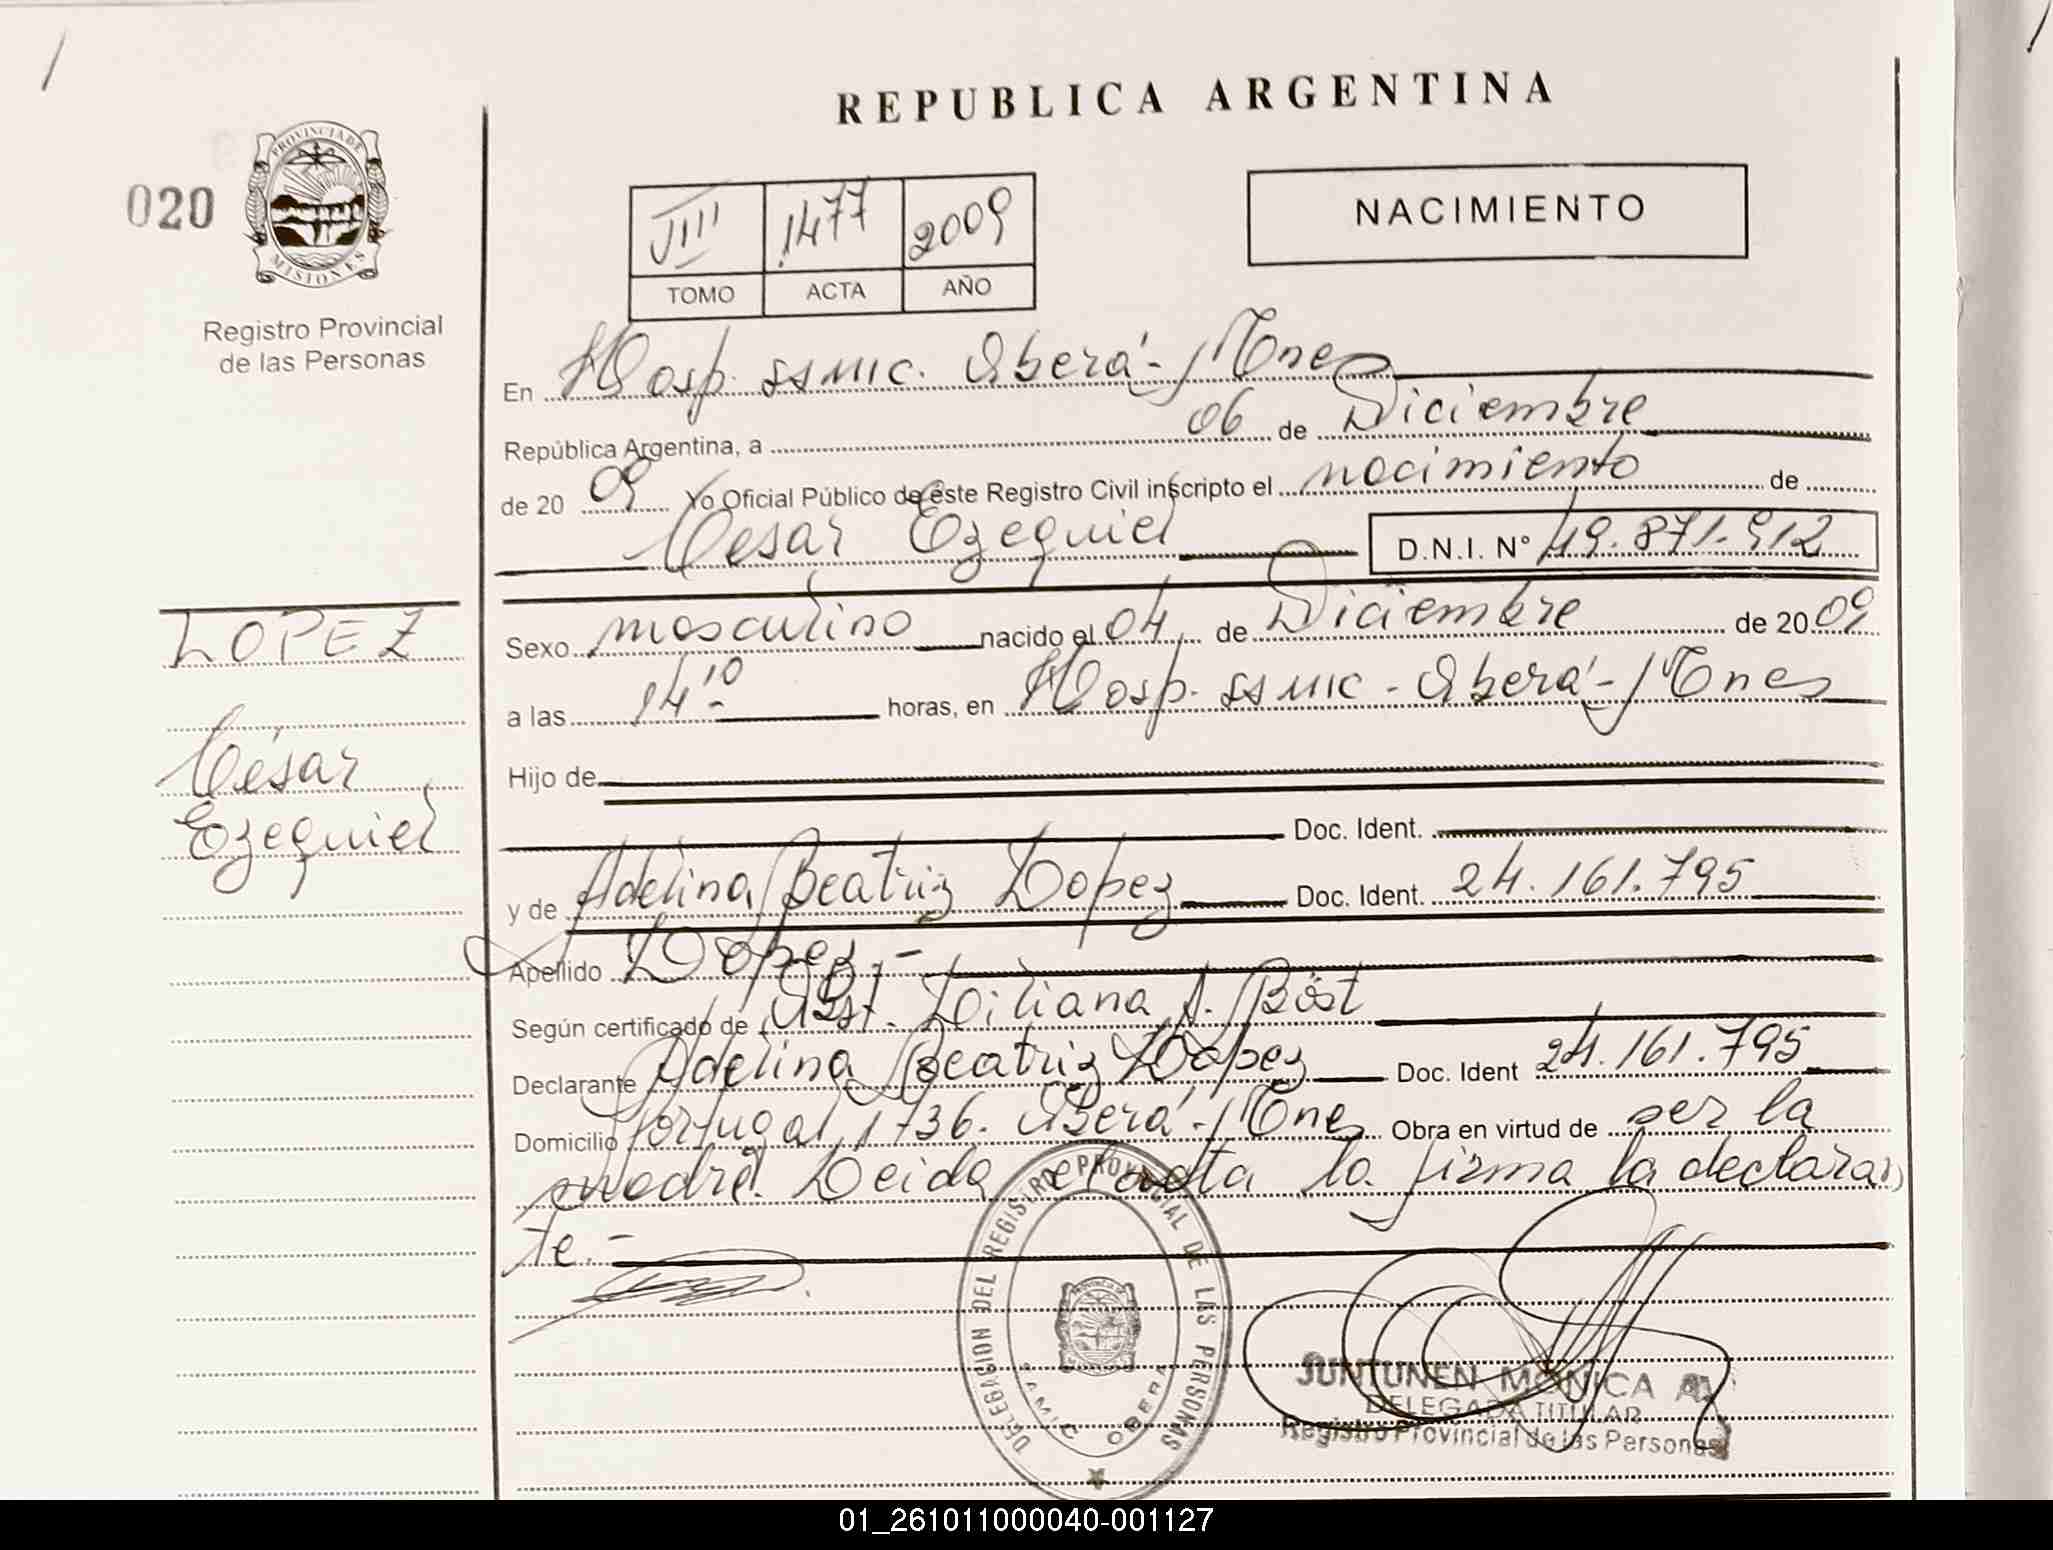 REPUBLICA ARGENTINA
020
PROVINCIA DE
MISIONES
Registro Provincial
de las Personas
VIII 1477 2009
TOMO ACTA AÑO
NACIMIENTO
En Hosp. SAMIC. Oberá - Mnes
República Argentina, a 06 de Diciembre
de 20 09 Yo Oficial Público de este Registro Civil inscripto el nacimiento de
César Ezequiel D.N.I. N° 49.871.912
LOPEZ
César
Ezequiel
Sexo masculino nacido el 04 de Diciembre de 20 09
a las 14 10 horas, en Hosp. SAMIC - Oberá - Mnes
Hijo de
Doc. Ident.
y de Adelina Beatriz Lopez Doc. Ident. 24.161.795
Apellido Lopez.-
Según certificado de Obst. Liliana A. Böst
Declarante Adelina Beatriz Lopez Doc. Ident 24.161.795
Domicilio Portugal 1736. Oberá - Mnes Obra en virtud de ser la
madre. Leida el acta la firma la declaran
te.-
DELEGACION DEL REGISTRO PROVINCIAL DE LAS PERSONAS
SAMIC OBERA
JUNTUNEN MONICA
DELEGADA TITULAR
Registro Provincial de las Personas
01_261011000040-001127